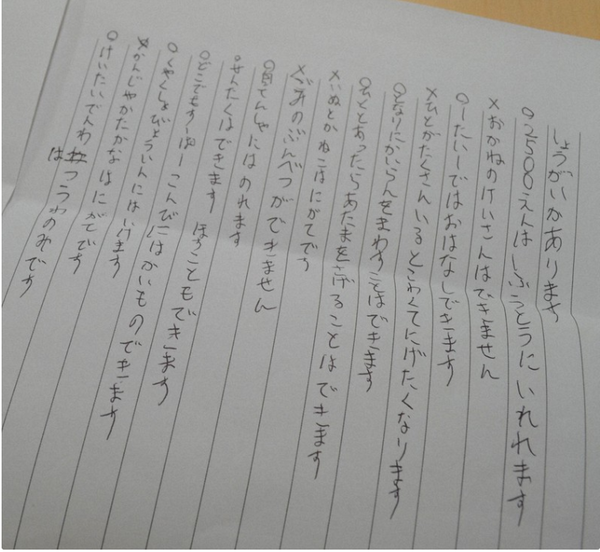 しょうがいかあります
○2500えんはしふうとうにいれれます
×おかねのけいさんはできません
○1たい1ではおはなしできます
×ひとがたくさんいるとこわくてにげたくなります
○となりにかいらんをまわすことはできます
○ひととあったらあたまをさげることはできます
×いぬとかねこはにがてです
×ごみのぶんべつができません
○自てんしゃにはのれます
○せんたくはできます ほすこともできます
○どこでもすーぱーこんびにはかいものできます
○くやくしょびょういんにはいけます
×かんじやかたかなはにがてです
○けいたいでんわはつうわのみです